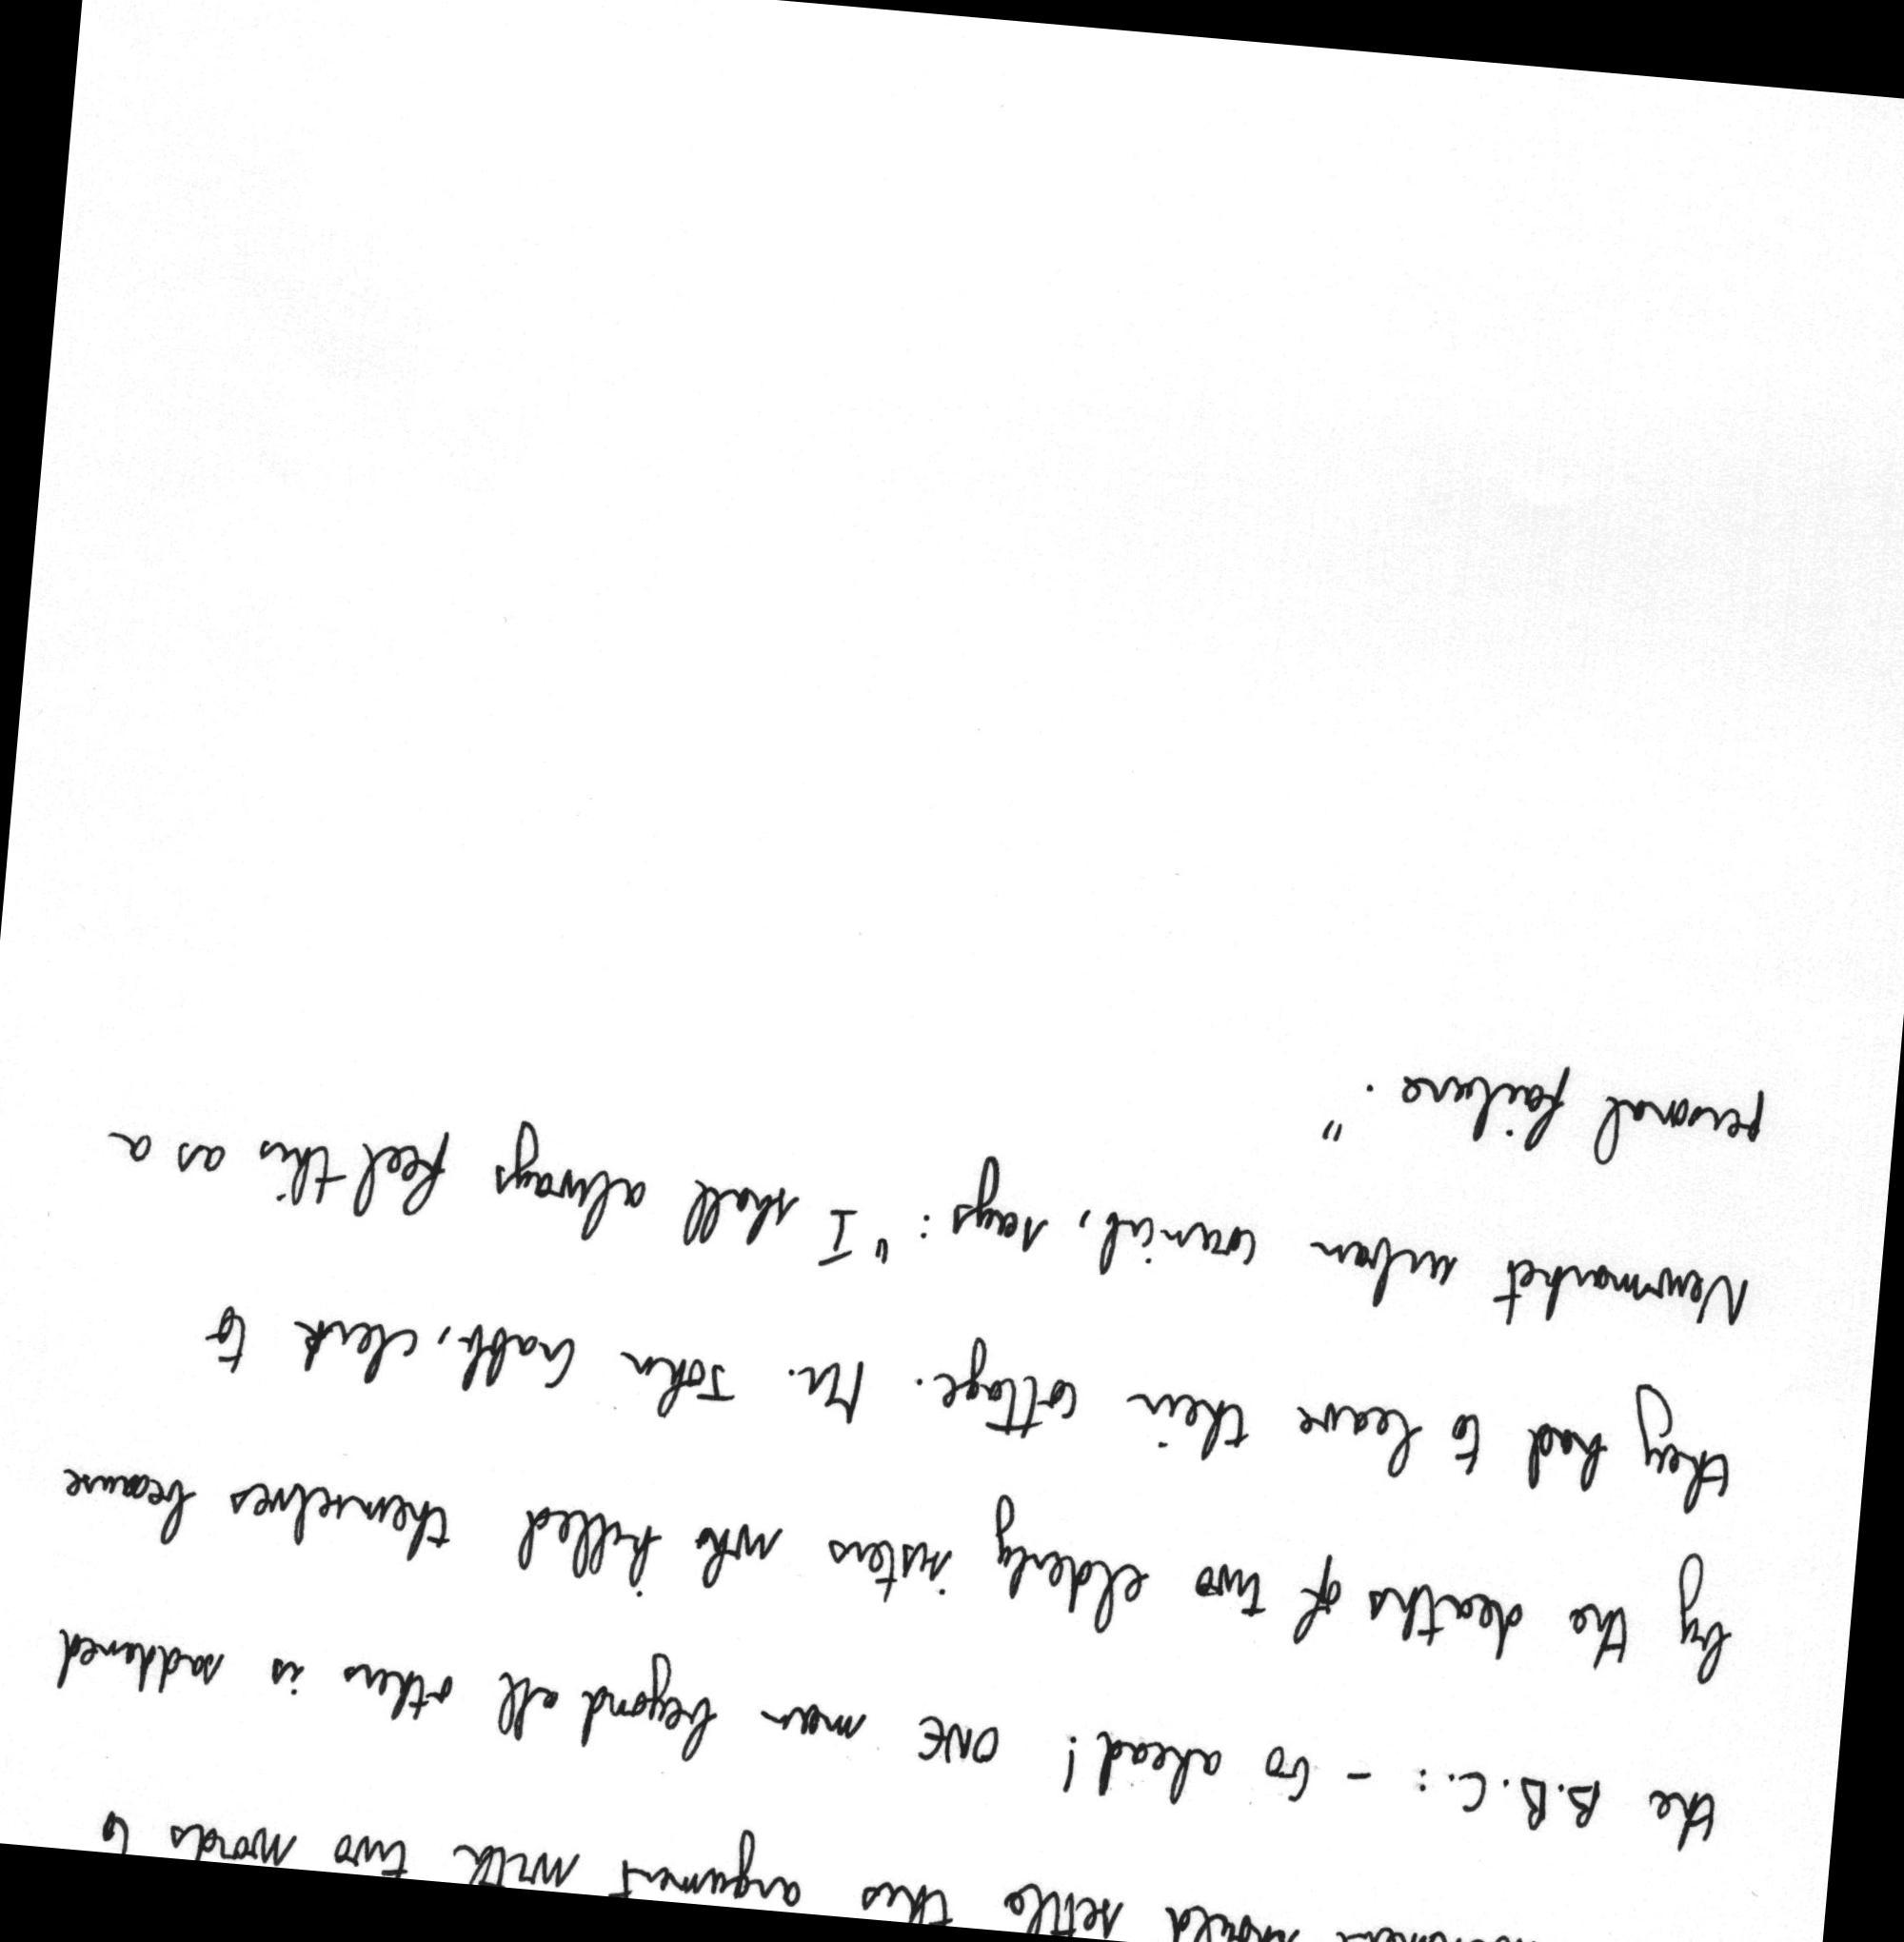 would settle this argument with two words to
the B.B.C.: - Go ahead! ONE man beyond all others is saddened
by the deaths of two elderly sisters who killed themselves because
they had to leave their cottage. Mr. John Grabb, clerk to
Newmarket urban council, says: "I shall always feel this as a
personal failure."